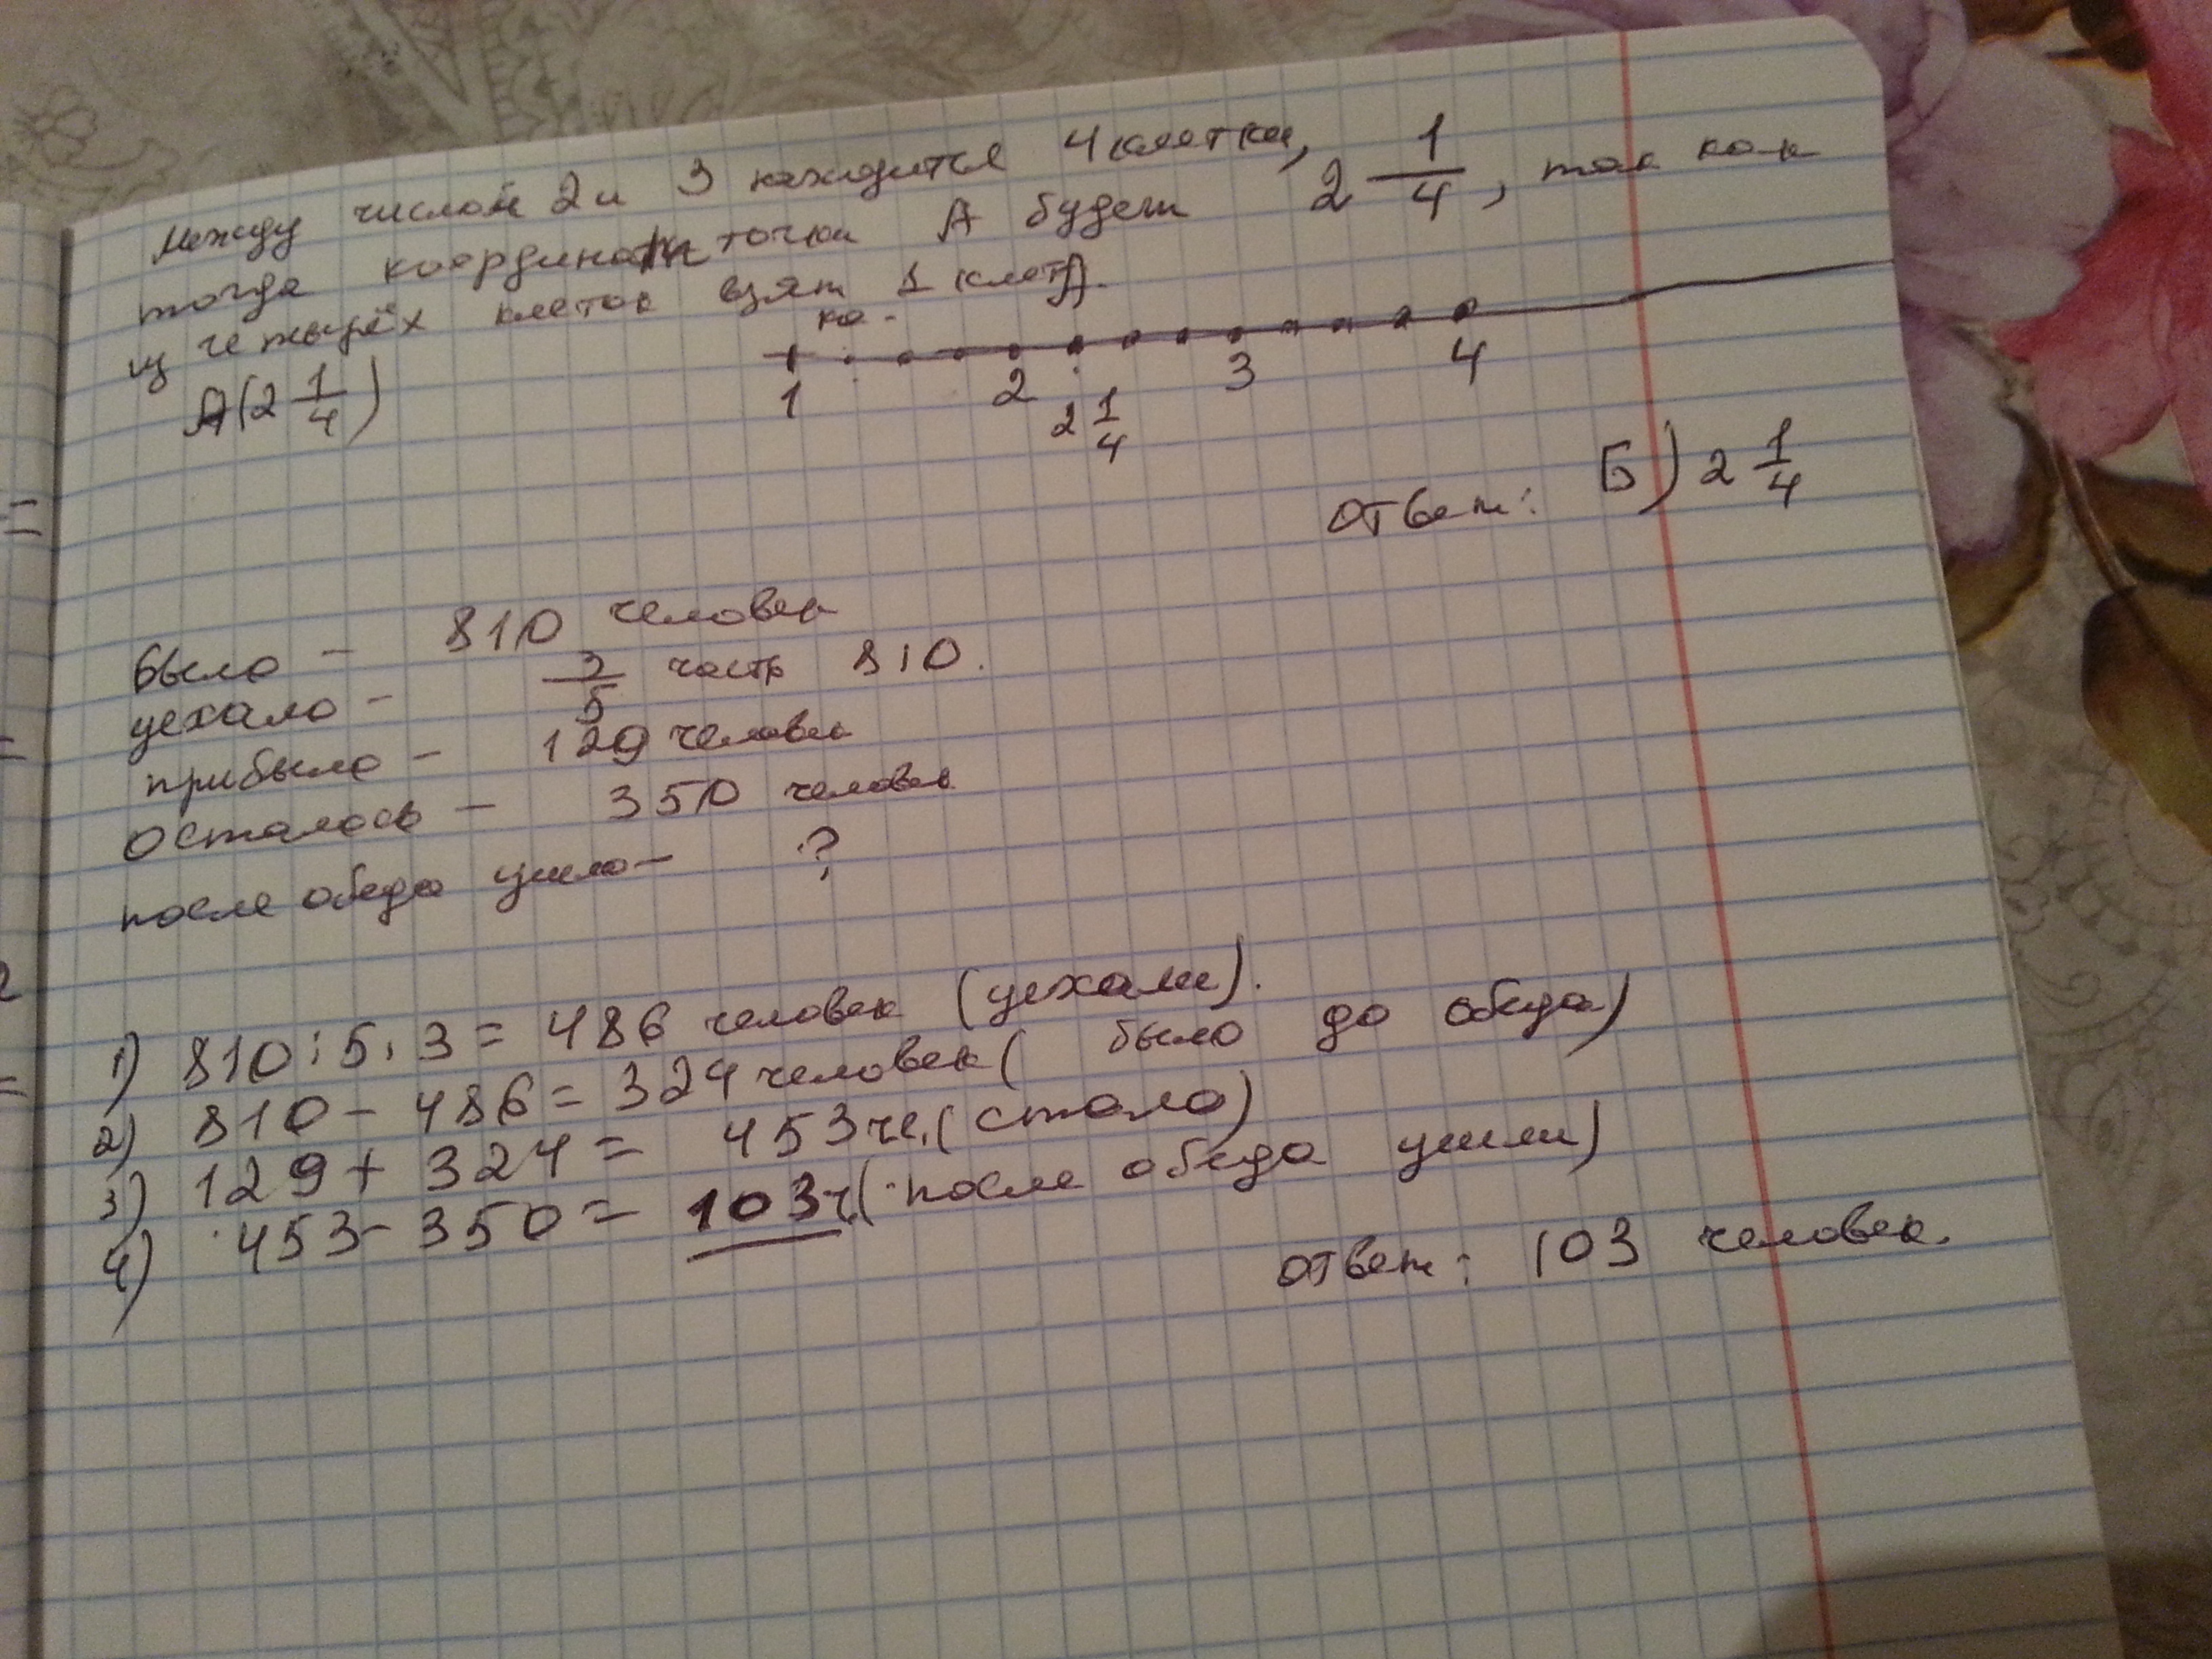 Между числом 2 и 3 находится 4 клетки,
тогда координаты точки А будет 2 1/4, так как
из четырёх клеток взят 1 клет
ка.
А
А(2 1/4)
1 2 3 4
2 1/4
ответ: Б) 2 1/4
было - 810 человек
уехало - 3/5 часть 810.
прибыло - 129 человек
осталось - 350 человек
после обеда ушло - ?
1) 810 : 5 · 3 = 486 человек (уехали).
2) 810 - 486 = 324 человек ( было до обеда)
3) 129 + 324 = 453 че. (стало)
4) 453 - 350 = 103 ч (после обеда ушли)
ответ: 103 человек.
=